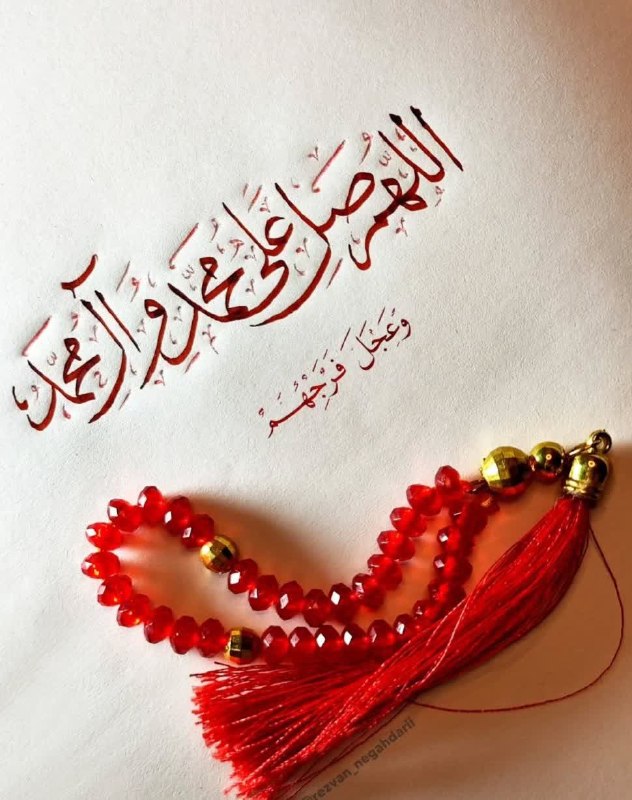 اللّٰهُمَّ صَلِّ عَلَى مُحَمَّدٍ وَ آلِ مُحَمَّدٍ
وَ عَجِّلْ فَرَجَهُمْ
@rezvan_negahdarii